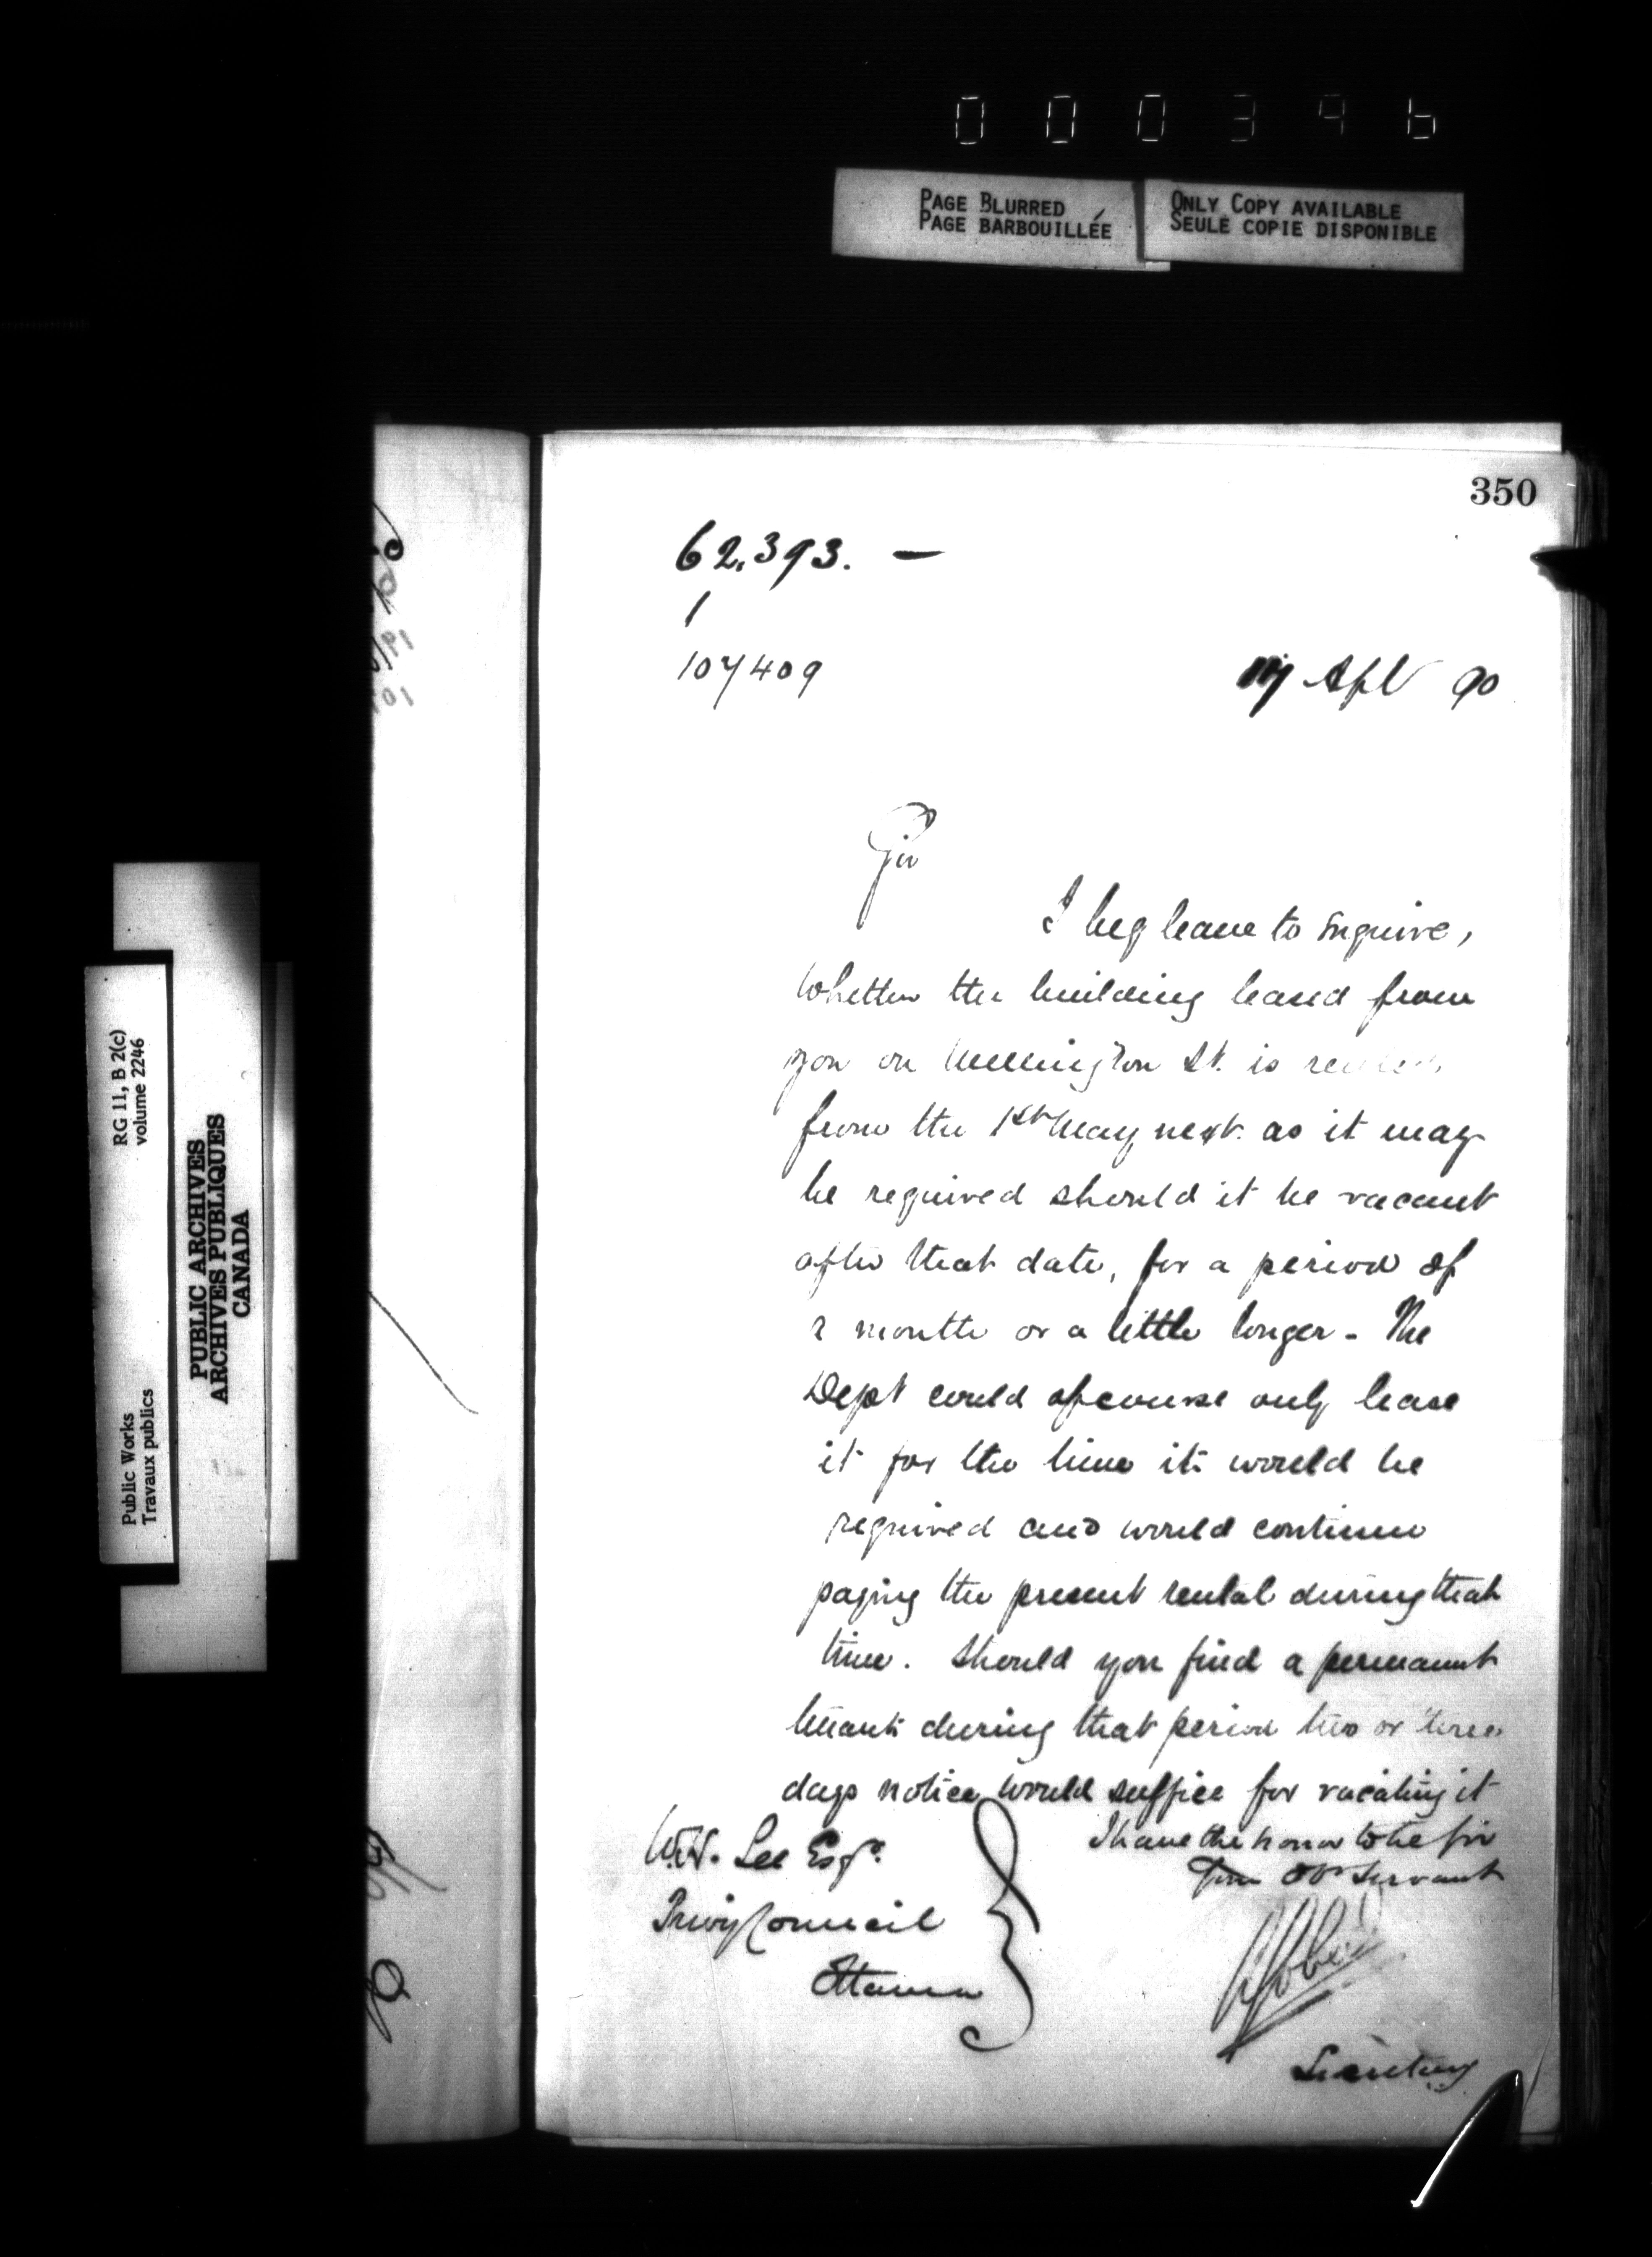 000396
PAGE BLURRED
PAGE BARBOUILLÉE
ONLY COPY AVAILABLE
SEULE COPIE DISPONIBLE
RG 11, B 2(c)
volume 2246
Public Works
Travaux publics
PUBLIC ARCHIVES
ARCHIVES PUBLIQUES
CANADA
350
62.393. —
1
107409
Apl 90
Sir
I beg leave to enquire,
whether the building leased from
you on Wellington St. is
from the 1st May next. as it may
be required should it be vacant
after that date, for a period of
2 months or a little longer - The
Dept could of course only lease
it for the time it would be
required and would continue
paying the present rental during that
time. Should you find a permanent
tenant during that period two or three
days notice would suffice for vacating it
I have the honor to be Sir
Your Ob Servant
W.H. Lee Esqr.
Privy Council
Ottawa
Secretary